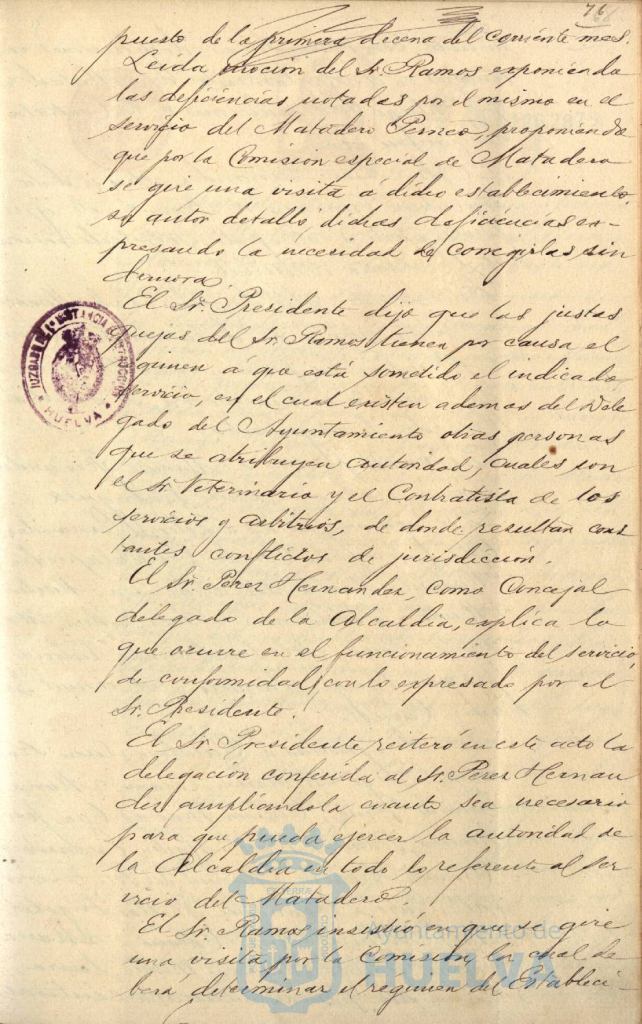 76
puesto de la primera decena del corriente mes.
Leida moción del Sr. Ramos exponiendo
las deficiencias notadas por el mismo en el
servicio del Matadero, proponiendo
que por la Comision especial de Matadero
se gire una visita á dicho establecimiento,
su autor detalló dichas deficiencias ex-
presando la necesidad de corregirlas sin
demora.
El Sr. Presidente dijo que las justas
quejas del Sr. Ramos tienen por causa el
régimen á que está sometido el indicado
servicio, en el cual existen ademas del Dele-
gado del Ayuntamiento otras personas
que se atribuyen autoridad, cuales son
el Sr. Veterinario y el Contratista de los
servicios y arbitrios, de donde resultan cons-
tantes conflictos de jurisdicción.
El Sr. Perez Hernandez, como Concejal
delegado de la Alcaldia, explica lo
que ocurre en el funcionamiento del servicio,
de conformidad con lo expresado por el
Sr. Presidente.
El Sr. Presidente reiteró en este acto la
delegación conferida al Sr. Perez Hernan
dez ampliándola cuanto sea necesario
para que pueda ejercer la autoridad de
la Alcaldia en todo lo referente al ser
vicio del Matadero.
El Sr. Ramos insistió en que se gire
una visita por la Comision, la cual de
berá determinar el regimen del Estableci-
HUELVA
Ayuntamiento de
HUELVA